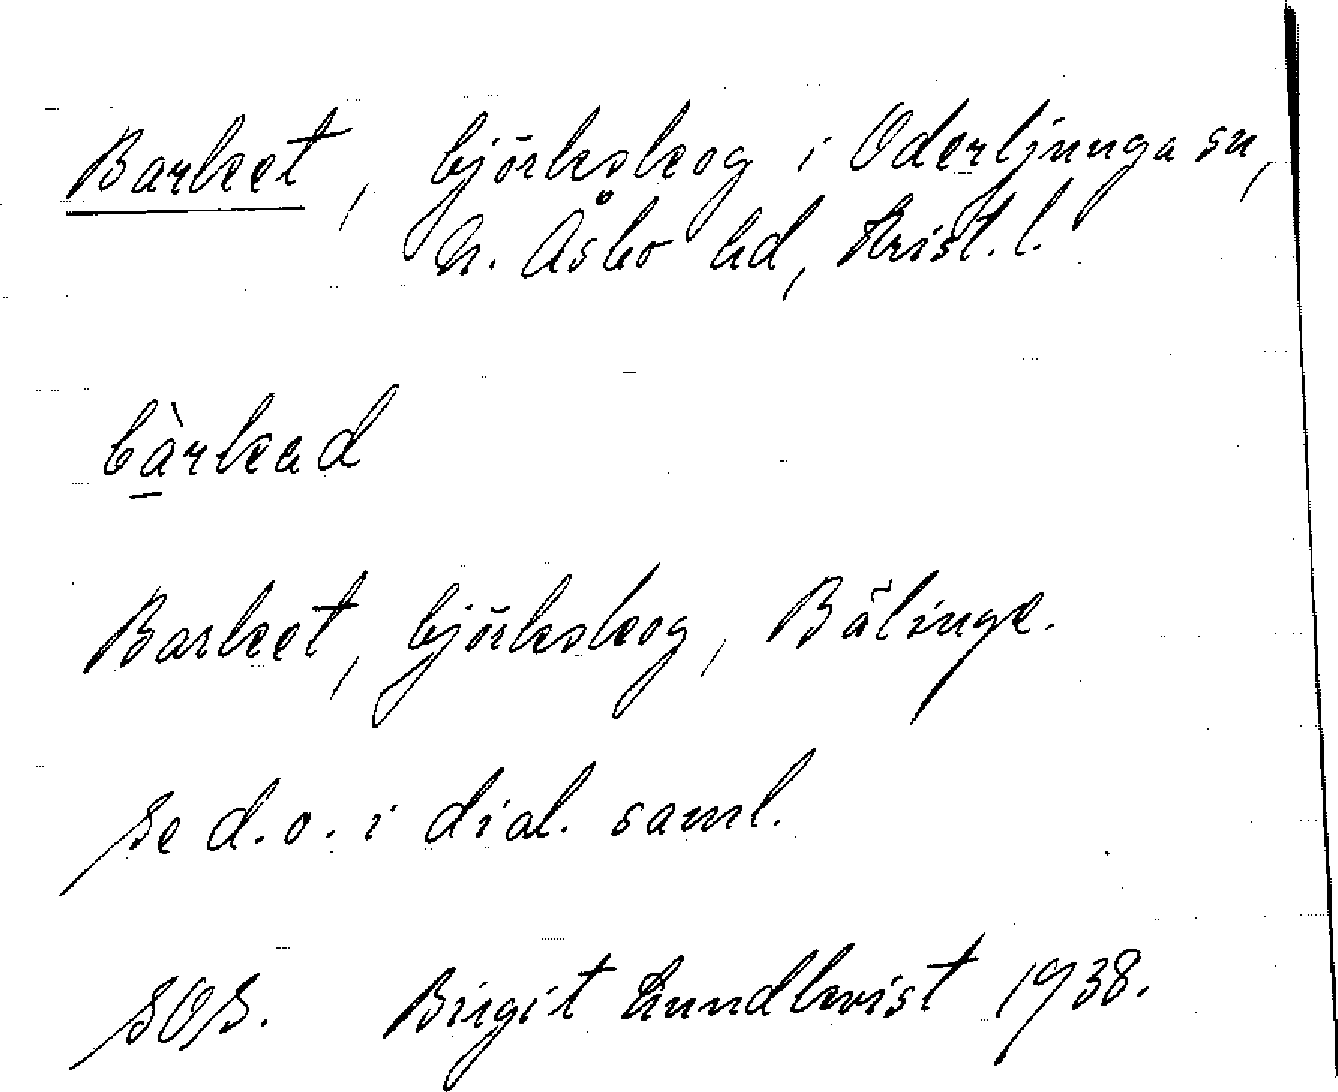 Barket, björkskog i Oderljunga sn,
N. Åsbo hd, Krist. l.
bàrkad
Barket, björkskog, Bälinge.
Se d.o. i dial. saml.
SOS. Birgit Lundkvist 1938.